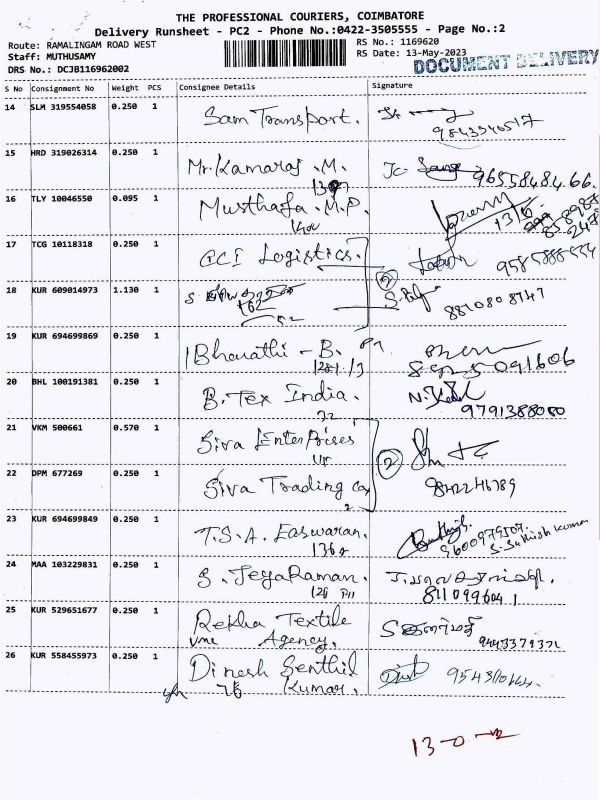 THE PROFESSIONAL COURIERS, COIMBATORE
Delivery Runsheet - PC2 - Phone No.:0422-3505555 - Page No.:2
Route: RAMALINGAM ROAD WEST
Staff: MUTHUSAMY
DRS No.: DCJB116962002
RS No.: 1169620
RS Date: 13-May-2023
DOCUMENT DELIVERY
S No Consignment No Weight PCS Consignee Details Signature
14 SLM 319554058 0.250 1 Sam Transport.
9843340517
15 HRD 319026314 0.250 1 Mr. Kamaraj .M.
9655848466.
16 TLY 10046550 0.095 1 Musthafa .M.P.
17 TCG 10118318 0.250 1 GCI Logistics. 2
18 KUR 609014973 1.130 1 S
8810808747
19 KUR 694699869 0.250 1 Bharathi - B.
1281/3
20 BHL 100191381 0.250 1 B. Tex India.
32
9791388080
21 VKM 500661 0.570 1 Siva Enterprises 2
22 DPM 677269 0.250 1 Siva Trading Coy
9842246789
23 KUR 694699849 0.250 1 T.S.A. Easwaran.
9600979507
S. Sathish kumar
24 MAA 103229831 0.250 1 S. JeyaRaman.
128
811099604 1
25 KUR 529651677 0.250 1 Rekha Textile
Agency.
9443379371
26 KUR 558455973 0.250 1 Dinesh Senthil
76 Kumar.